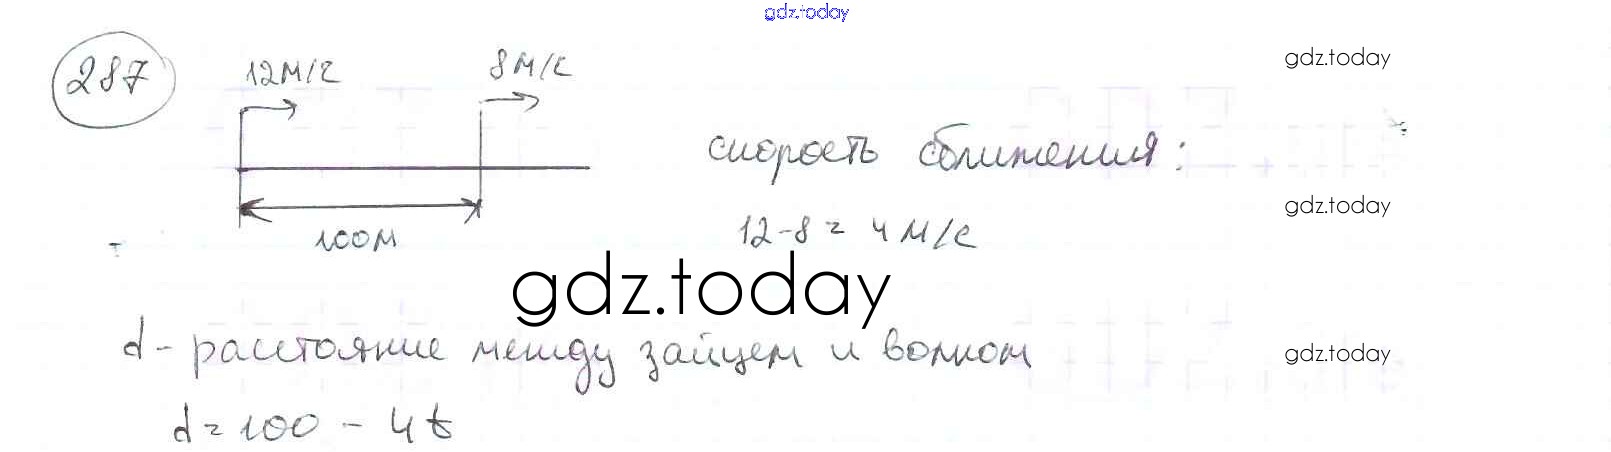 gdz.today
287
12м/с
8м/с
gdz.today
скорость сближения:
gdz.today
100м
12-8 = 4 м/с
gdz.today
d - расстояние между зайцем и волком
gdz.today
d = 100 - 4t